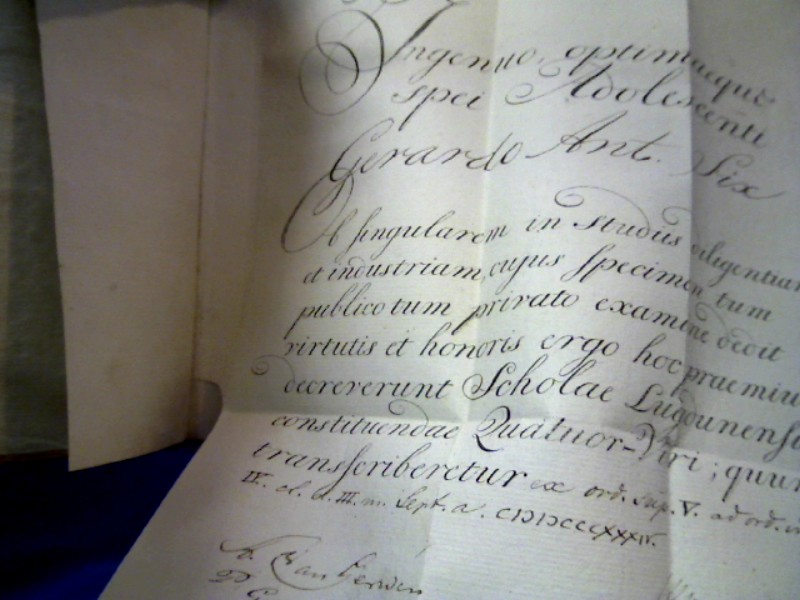 Ingenuo, optimaeque
spei Adolescenti
Gerardo Ant. Six
Ob singularem in studiis diligentiam
et industriam, cujus specimen tum
publico tum privato examine dedit
virtutis et honoris ergo hoc praemiu
decreverunt Scholae Lugdunensi
constituendae Quatuor-Viri; quum
transscriberetur ex ord. sup. V. ad ord.
IV. cl. a. III. m. Sept. a. CIƆIƆCCCXXXIV.
van Gerwen